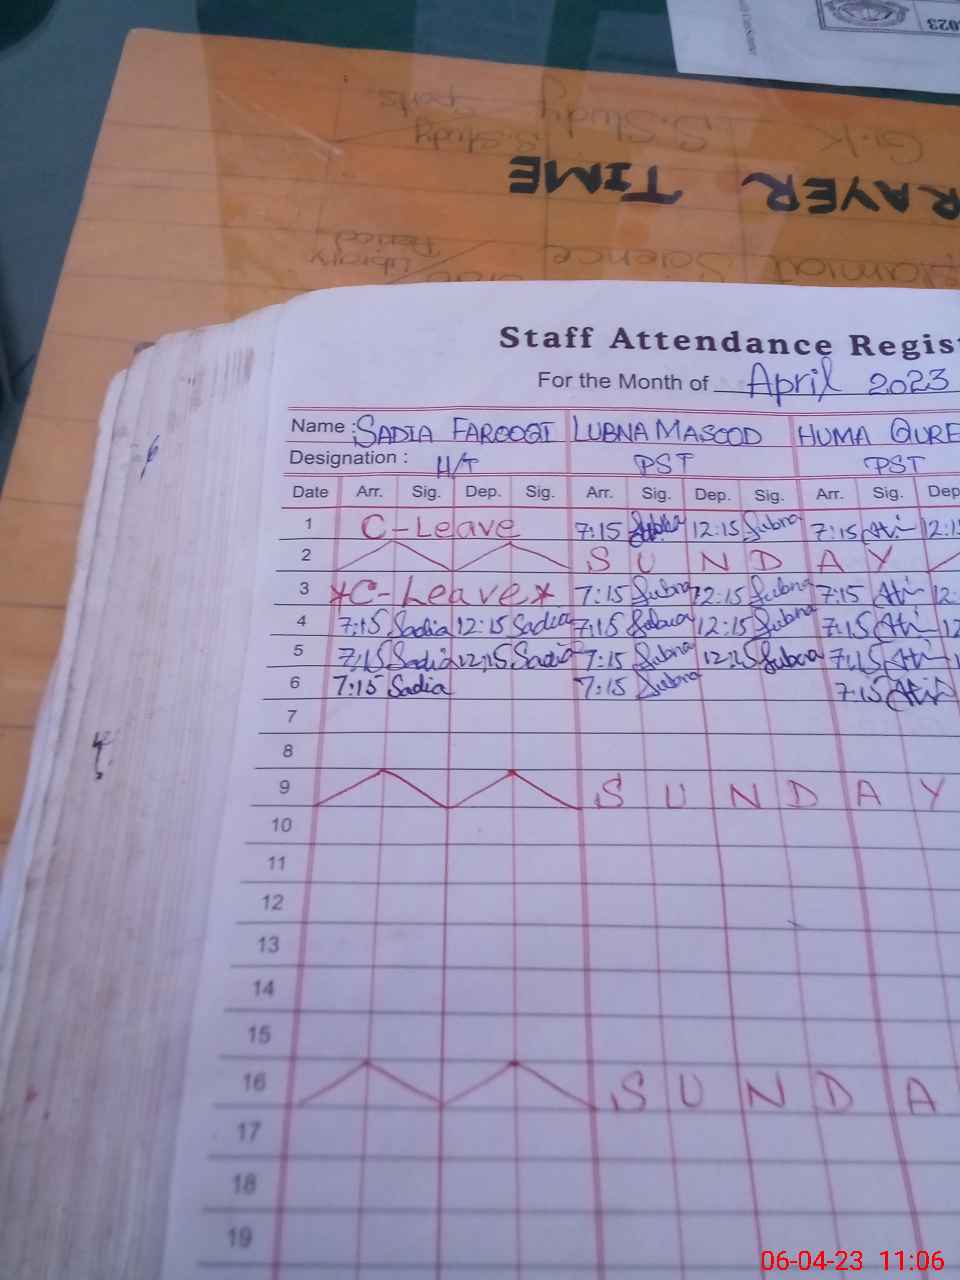 2023
G.K S.Study Sports
S.Study
PRAYER TIME
Islamiat Science
Library
Period
Staff Attendance Regis
For the Month of April 2023
Name : SADIA FAROOQI LUBNA MASOOD HUMA QURE
Designation : H/T PST PST
Date Arr. Sig. Dep. Sig. Arr. Sig. Dep. Sig. Arr. Sig. Dep
1 C-Leave 7:15 Lubna 12:15 Lubna 7:15 12:1
2 S U N D A Y
3 *C-Leave* 7:15 Lubna 12:15 Lubna 7:15 12:
4 7:15 Sadia 12:15 Sadia 7:15 Lubna 12:15 Lubna 7:15 12
5 7:15 Sadia 12:15 Sadia 7:15 Lubna 12:15 Lubna 7:15 1
6 7:15 Sadia 7:15 Lubna 7:15
7
8
9 S U N D A Y
10
11
12
13
14
15
16 S U N D A
17
18
19
06-04-23 11:06